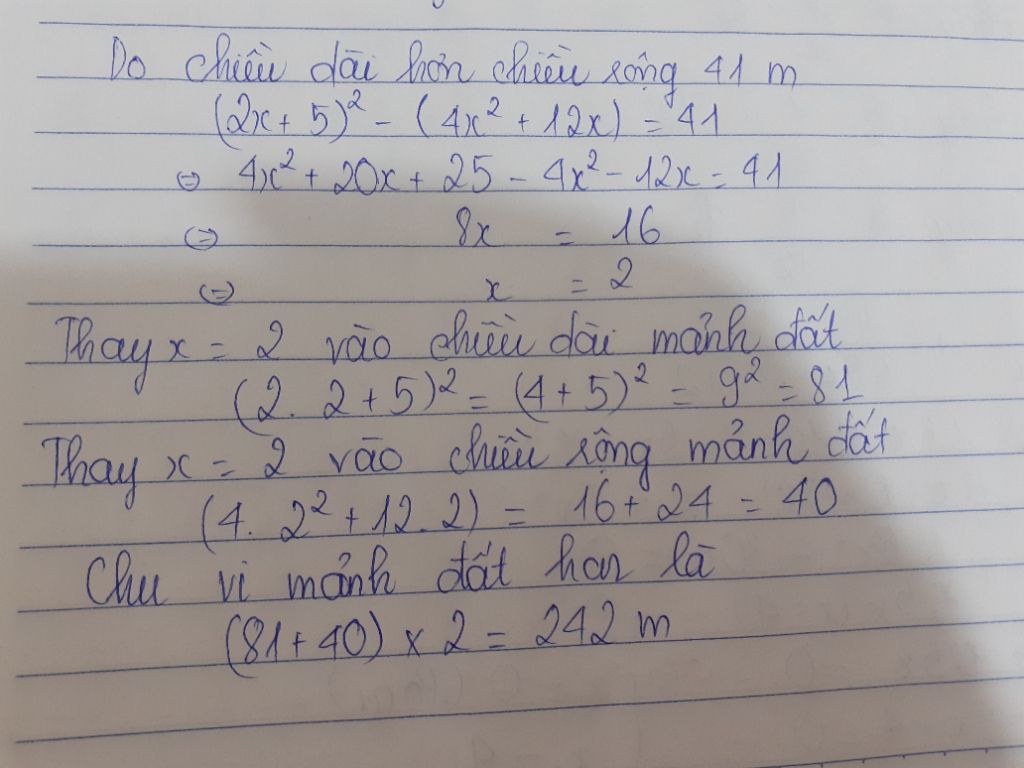 Do chiều dài hơn chiều rộng 41 m
(2x + 5)² - (4x² + 12x) = 41
⇔ 4x² + 20x + 25 - 4x² - 12x = 41
⇔ 8x = 16
⇔ x = 2
Thay x = 2 vào chiều dài mảnh đất
(2. 2 + 5)² = (4 + 5)² = 9² = 81
Thay x = 2 vào chiều rộng mảnh đất
(4. 2² + 12. 2) = 16 + 24 = 40
Chu vi mảnh đất hcn là
(81 + 40) × 2 = 242 m